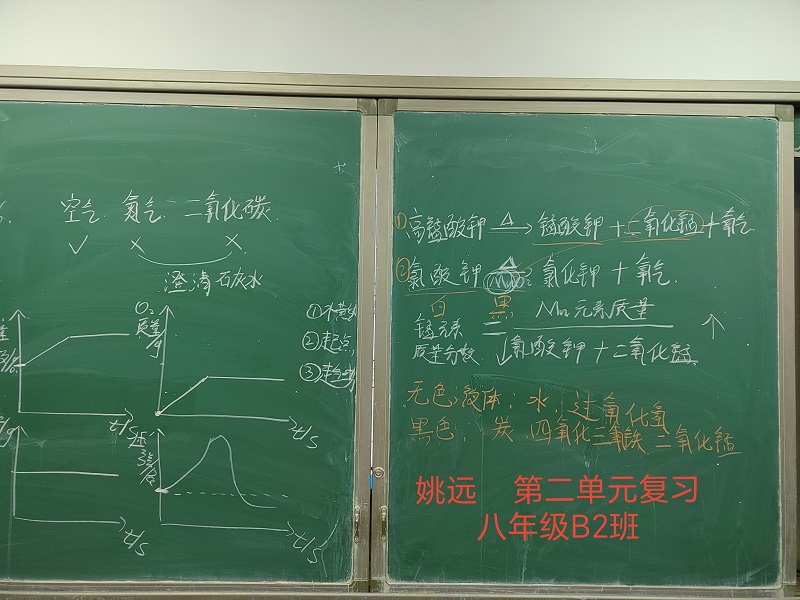 空气 氮气 二氧化碳
✓ × ×
澄清石灰水
O₂
质量/g
t/s
t/s
t/s
t/s
②起点
①高锰酸钾 △→ 锰酸钾+二氧化锰+氧气
②氯酸钾 △ MnO₂ 氯化钾+氧气
白 黑
锰元素质量分数 = Mn元素质量 ↑
↓氯酸钾+二氧化锰
无色液体：水，过氧化氢
黑色：炭 四氧化三铁 二氧化锰
姚远 第二单元复习
八年级B2班